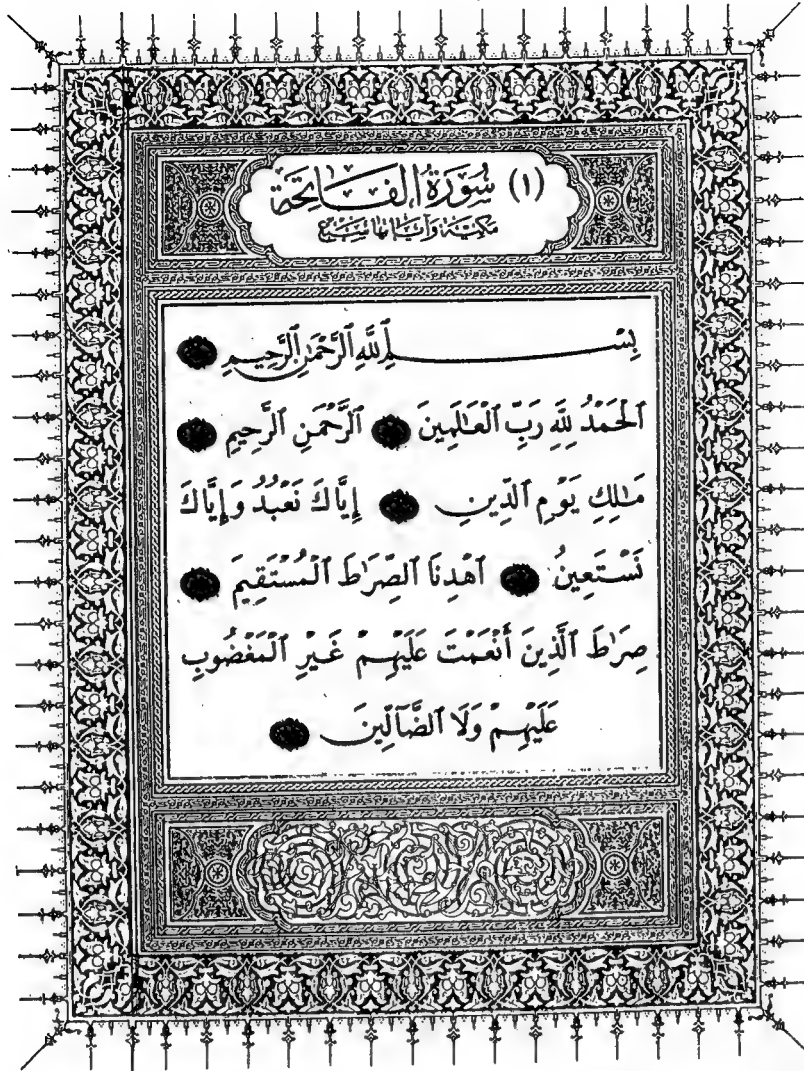 (١) سُورَةُ الفَاتِحَةِ
مَكِّيَّة وَآيَاتُهَا سَبْعٌ
بِسْمِ ٱللَّهِ ٱلرَّحْمَٰنِ ٱلرَّحِيمِ
ٱلْحَمْدُ لِلَّهِ رَبِّ ٱلْعَٰلَمِينَ ٱلرَّحْمَٰنِ ٱلرَّحِيمِ
مَٰلِكِ يَوْمِ ٱلدِّينِ إِيَّاكَ نَعْبُدُ وَإِيَّاكَ
نَسْتَعِينُ ٱهْدِنَا ٱلصِّرَٰطَ ٱلْمُسْتَقِيمَ
صِرَٰطَ ٱلَّذِينَ أَنْعَمْتَ عَلَيْهِمْ غَيْرِ ٱلْمَغْضُوبِ
عَلَيْهِمْ وَلَا ٱلضَّآلِّينَ